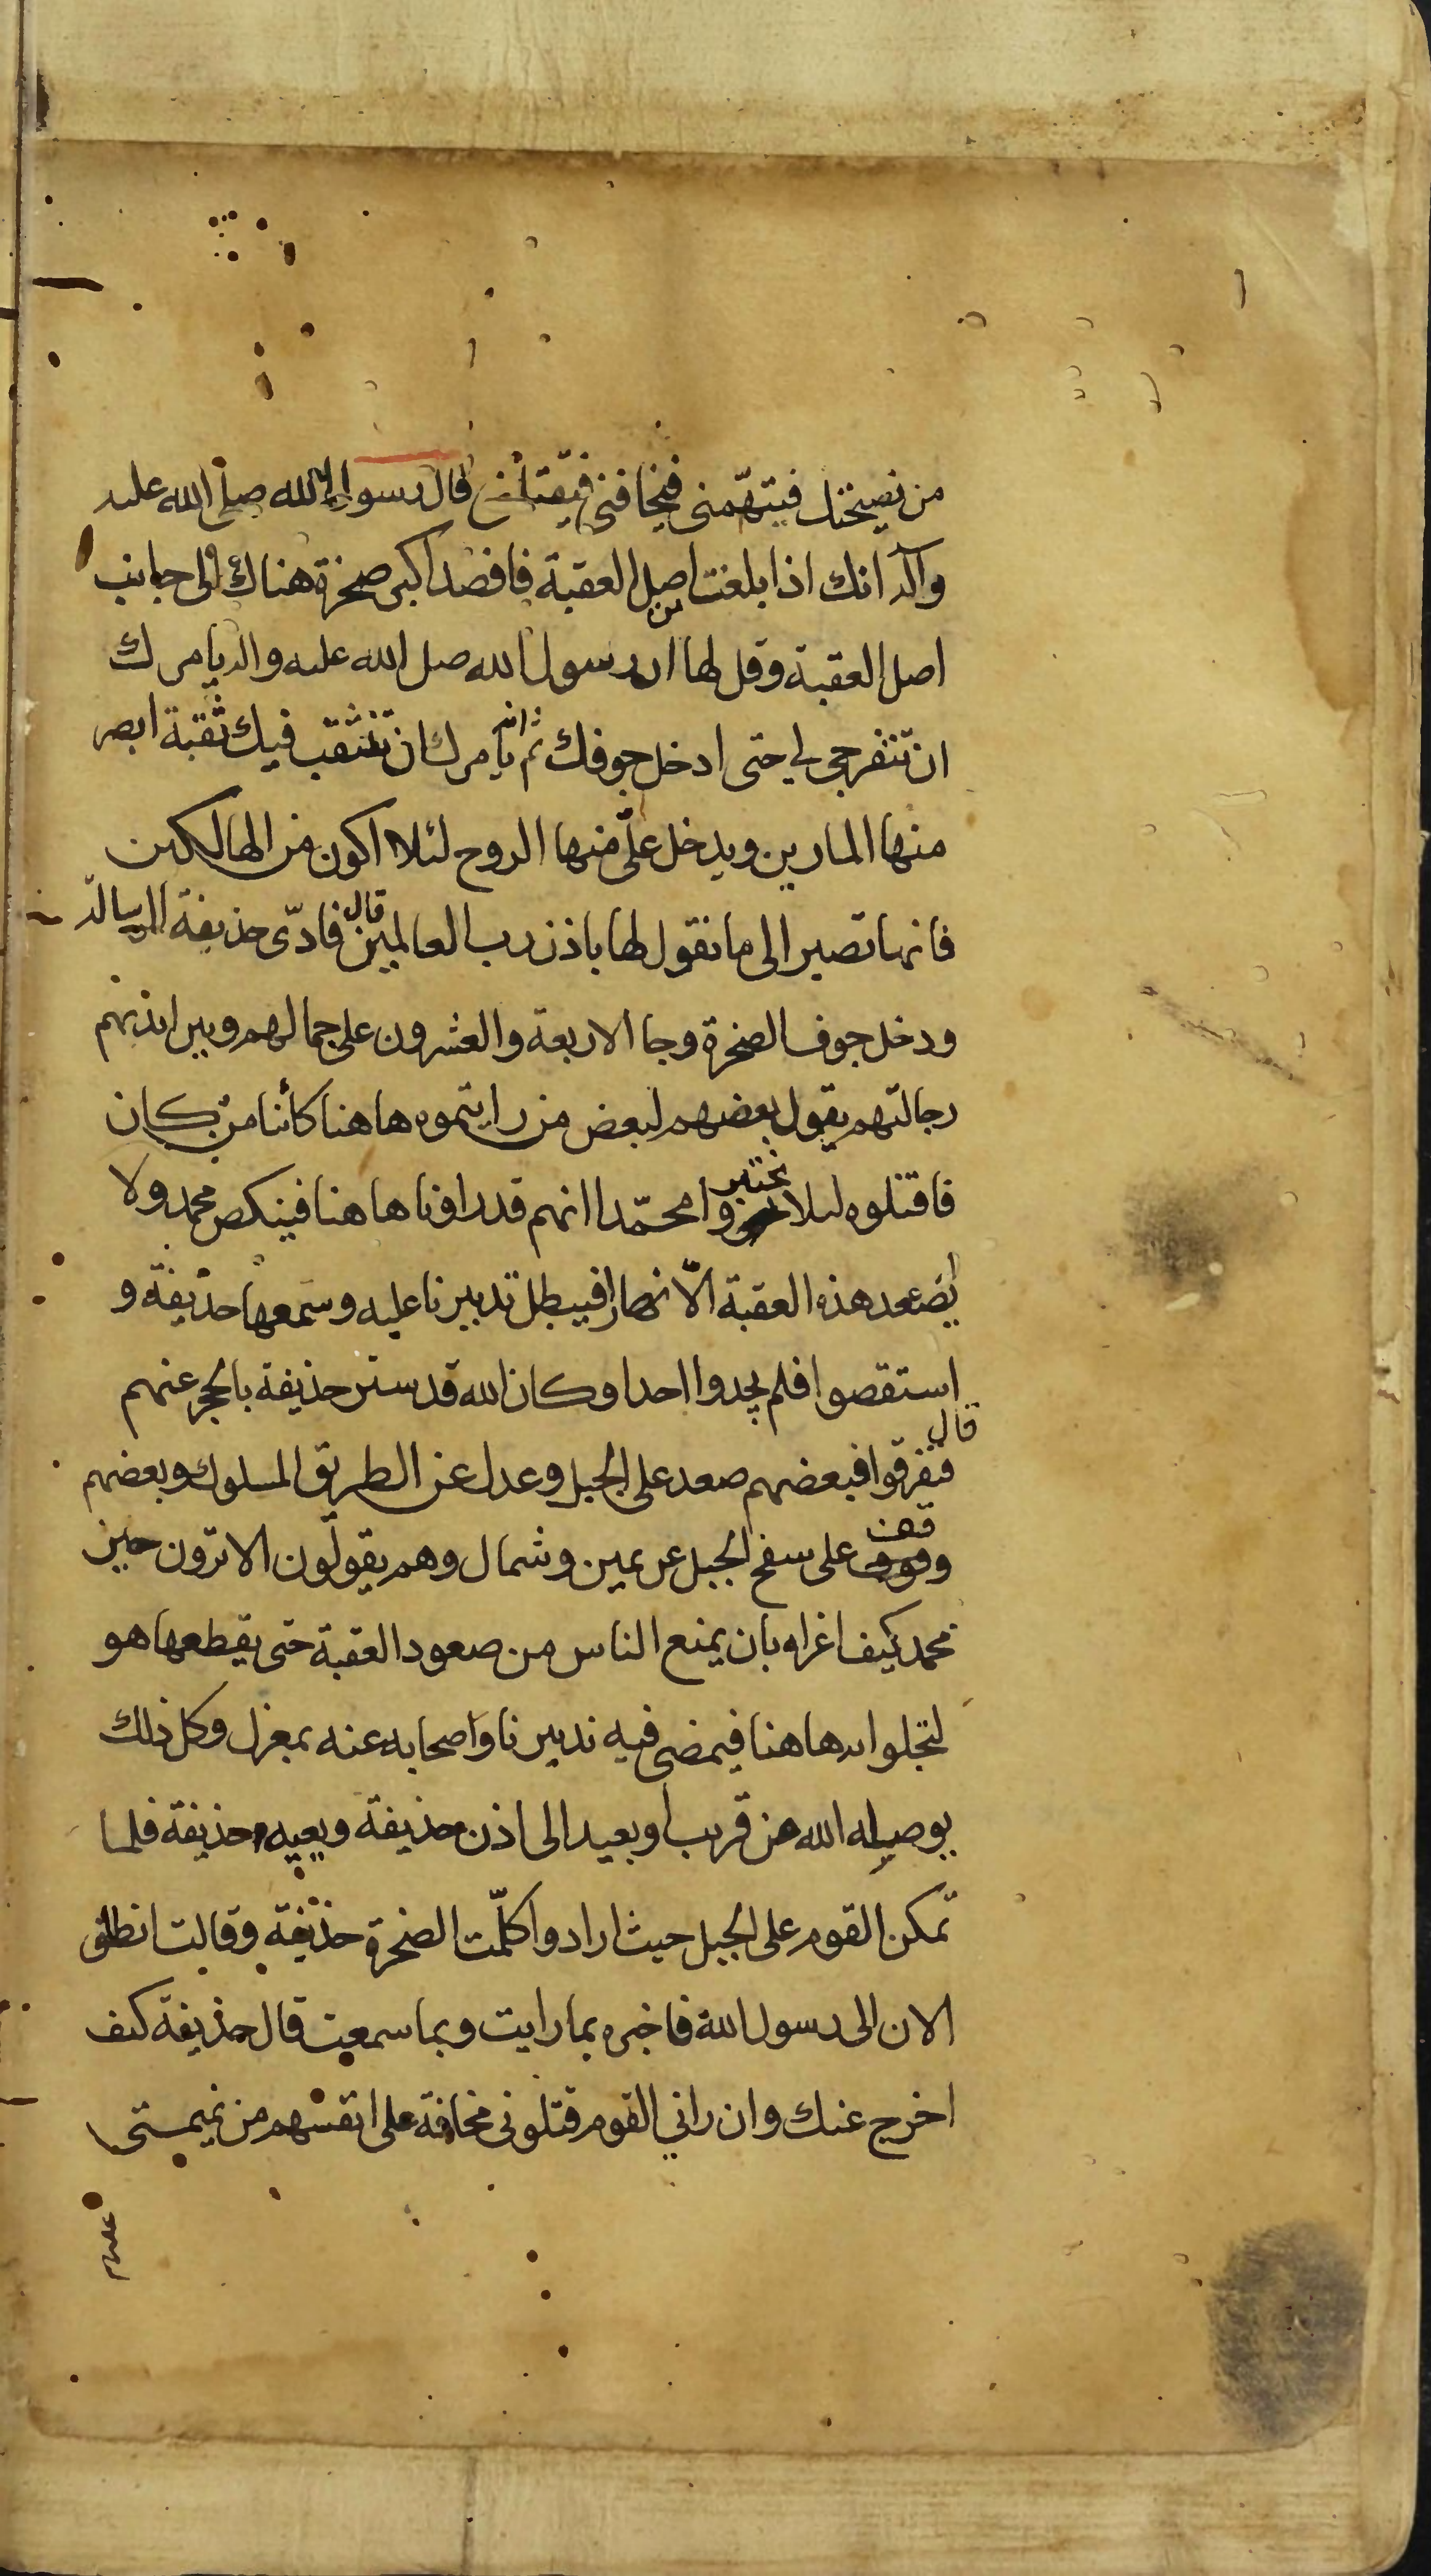 من نصيحتك فيتهمني فيخافني فيقتلني قال رسول الله صلى الله عليه
وآله انك اذا بلغت اصل العقبة فاقصد اكبر صخرة هناك الى جانب
اصل العقبة وقل لها ان رسول الله صلى الله عليه واله يامرك
ان تنفرجي لي حتى ادخل جوفك ثم انه يامرك ان تنثقب فيك ثقبة ابصر
منها المارين ويدخل عليّ منها الروح لئلا اكون من الهالكين
فانها تصير الى ما تقول لها باذن رب العالمين قال فادّى حذيفة الرسالة
ودخل جوف الصخرة وجا الاربعة والعشرون على جمالهم وبين ايديهم
رجالتهم يقول بعضهم لبعض من رايتموه هاهنا كائنا من كان
فاقتلوه لئلا يخبروا محمّدا انهم قد راونا هاهنا فينكص محمد ولا
يصعد هذه العقبة الّا نهارا فيبطل تدبيرنا عليه وسمعها حذيفة و
استقصوا فلم يجدوا احدا وكان الله قد ستر حذيفة بالحجر عنهم
قال
فتفرقوا فبعضهم صعد على الجبل وعدل عن الطريق المسلوك وبعضهم
وقف على سفح الجبل عن يمين وشمال وهم يقولون الا ترون حين
محمد كيف اغراه بان يمنع الناس من صعود العقبة حتى يقطعها هو
لنخلوا به هاهنا فيمضي فيه تدبيرنا واصحابه عنه بمعزل وكل ذلك
يوصله الله من قريب او بعيد الى اذن حذيفة ويعيه حذيفة فلما
تمكن القوم على الجبل حيث ارادوا كلّمت الصخرة حذيفة وقالت انطلق
الان الى رسول الله فاخبره بما رايت وبما سمعت قال حذيفة كيف
اخرج عنك وان راني القوم قتلوني مخافة على انفسهم من نميمتي
عليهم